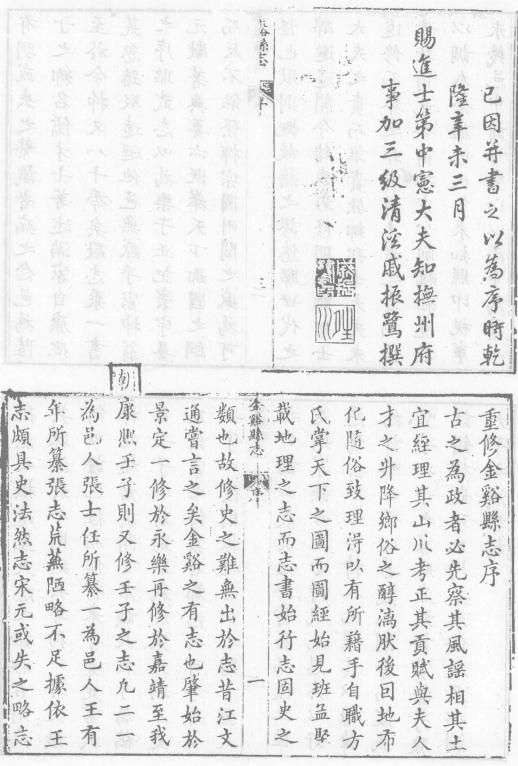 已因并書之以為序時乾
隆辛未三月
賜進士第中憲大夫知撫州府
事加三級清溪戚振鷺撰
重修金谿縣志序
古之為政者必先察其風謠相其土
宜經理其山川考正其貢賦與夫人
才之升降鄉俗之醇漓肰後因地布
化随俗致理得以有所藉手自職方
氏掌天下之圖而圖經始見班孟堅
載地理之志而志書始行志固史之
金谿縣志
序
一
類也故修史之難無出於志昔江文
通嘗言之矣金谿之有志也肇始於
景定一修於永樂再修於嘉靖至我
朝
康熙壬子則又修壬子之志九二一
為邑人張士任所纂一為邑人王有
年所纂張志荒蕪陋略不足據依王
志頗具史法然志宋元或失之略志